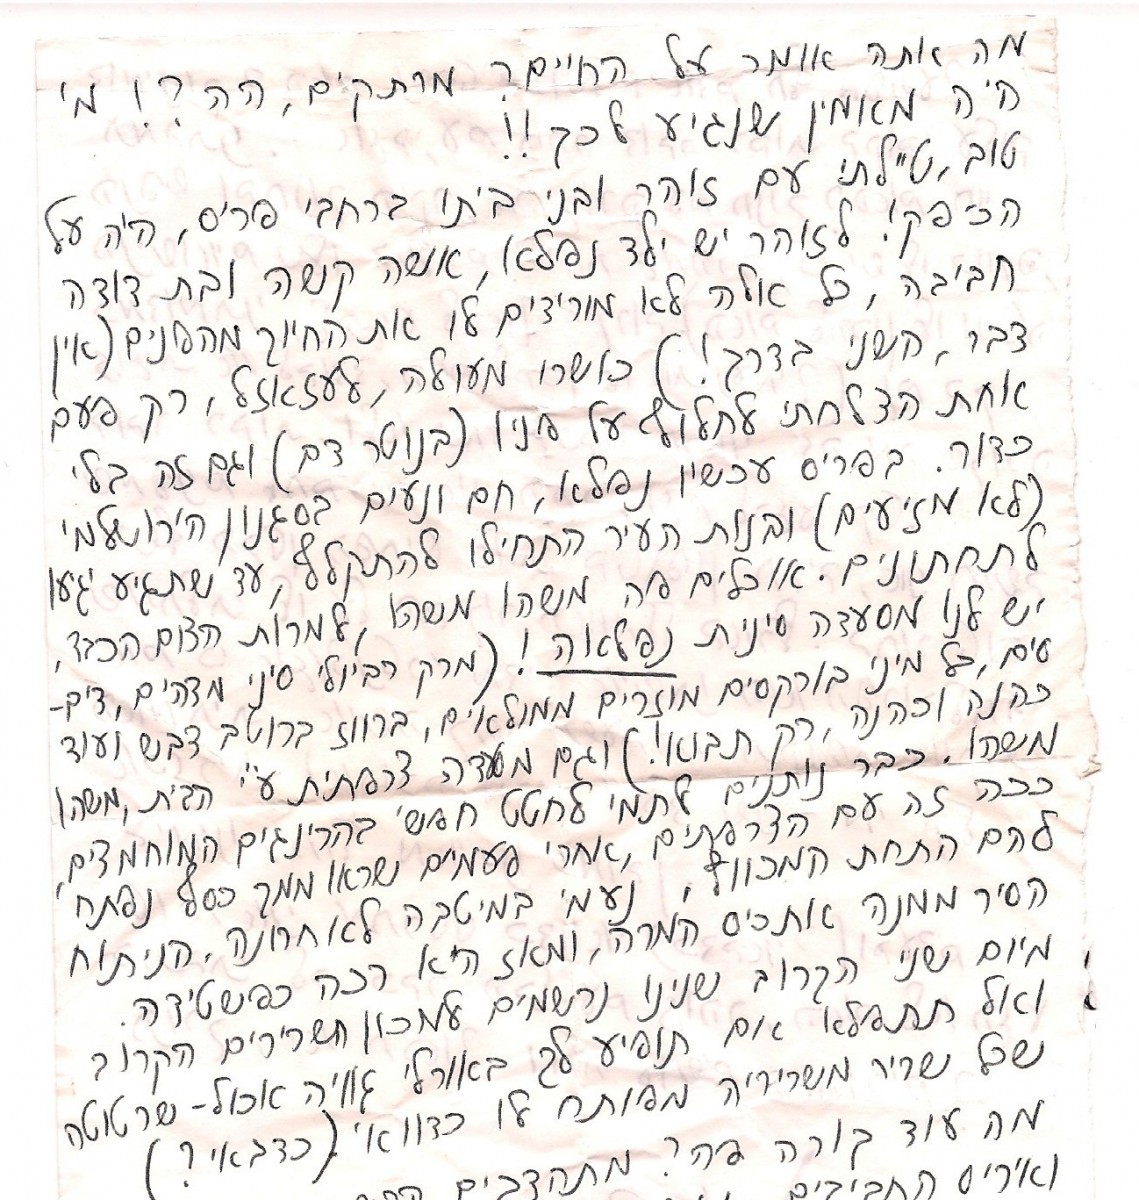 מה אתה אומר על החיים? מרתקים, הה?! מי
היה מאמין שנגיע לכך!!
טוב, טיילתי עם זוהר ובני ביתו ברחבי פריס, היה על
הכיפק! לזוהר יש ילד נפלא, אשה קשה ובת דודה
חביבה, כל אלה לא מורידים לו את החיוך מהפנים (אין
דבר, השני בדרך!) כושרו מעולה, לעזאזל, רק פעם
אחת הצלחתי לחלוף על פניו (בנוטר דם) וגם זה בלי
כדור. בפריס עכשיו נפלא, חם ונעים בסגנון הירושלמי
(לא מזיעים) ובנות העיר התחילו להתקלף, עד שתגיע יגיעו
לתחתונים. אוכלים פה משהו משהו, למרות הצום הכבד,
יש לנו מסעדה סינית נפלאה! (מרק רביולי סיני מדהים, דים-
סים, כל מיני בורקסים מוזרים ממולאים, ברווז ברוטב דבש ועוד
כהנה וכהנה, רק תבוא!) וגם מסעדה צרפתית ע"י הבית, משהו
משהו. כבר נותנים לתמי לחטט חפשי בקרינגים המוחמדים,
ככה זה עם הצרפתים, אחרי פעמיים שראו ממך כסף נפתח
להם התחת המכווץ. נעמי במיטבה לאחרונה, הניתוח
הסיר ממנה את כיס המרה, ומאז היא רכה כפשטידה.
מיום שני הקרוב שנינו נרשמים למכון השרירים הקרוב
ואל תתפלא אם תופיע לך באורלי גוויה אכול-שרטוטה
שכל שריר משריריה מפותח לו כדוואי. (כדבאי?)
מה עוד קורה פה? מתהדבים
ואיריס החביבים